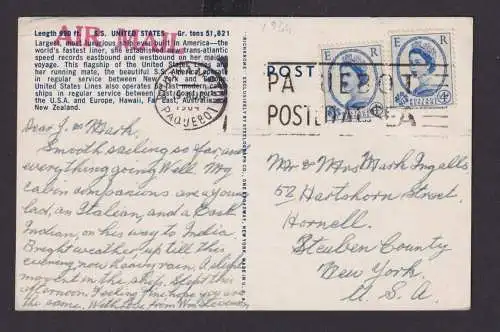 Length 990 ft. S.S. UNITED STATES Gr. tons 51,821
AIR MAIL
Largest, most luxurious liner ever built in America — the
world's fastest liner, she established new trans-atlantic
speed records eastbound and westbound on her maiden
voyage. This flagship of the United States Lines and
her running mate, the beautiful S.S. America, operate
in regular service between New York and Europe.
United States Lines also operates 47 fast modern cargo
ships in regular service between East coast ports of
the U.S.A. and Europe, Hawaii, Far East, Australia and
New Zealand.
PAQUEBOT
1964
POST
PAQUEBOT
POSTED AT SEA
E R
E R
Dear J. & Mark,
Smooth sailing so far and
everything going Well. My
cabin companions are a young
lad, an Italian, and a East
Indian, on his way to India
Bright weather up till this
evening now heavy rain. A slight
movement in the ship. Slept this
afternoon. Feeling fine hope you are
the same. With love from Wm
Mr & Mrs Mark Ingalls
52 Hartshorn Street.
Hornell.
Steuben County
New York.
U. S. A.